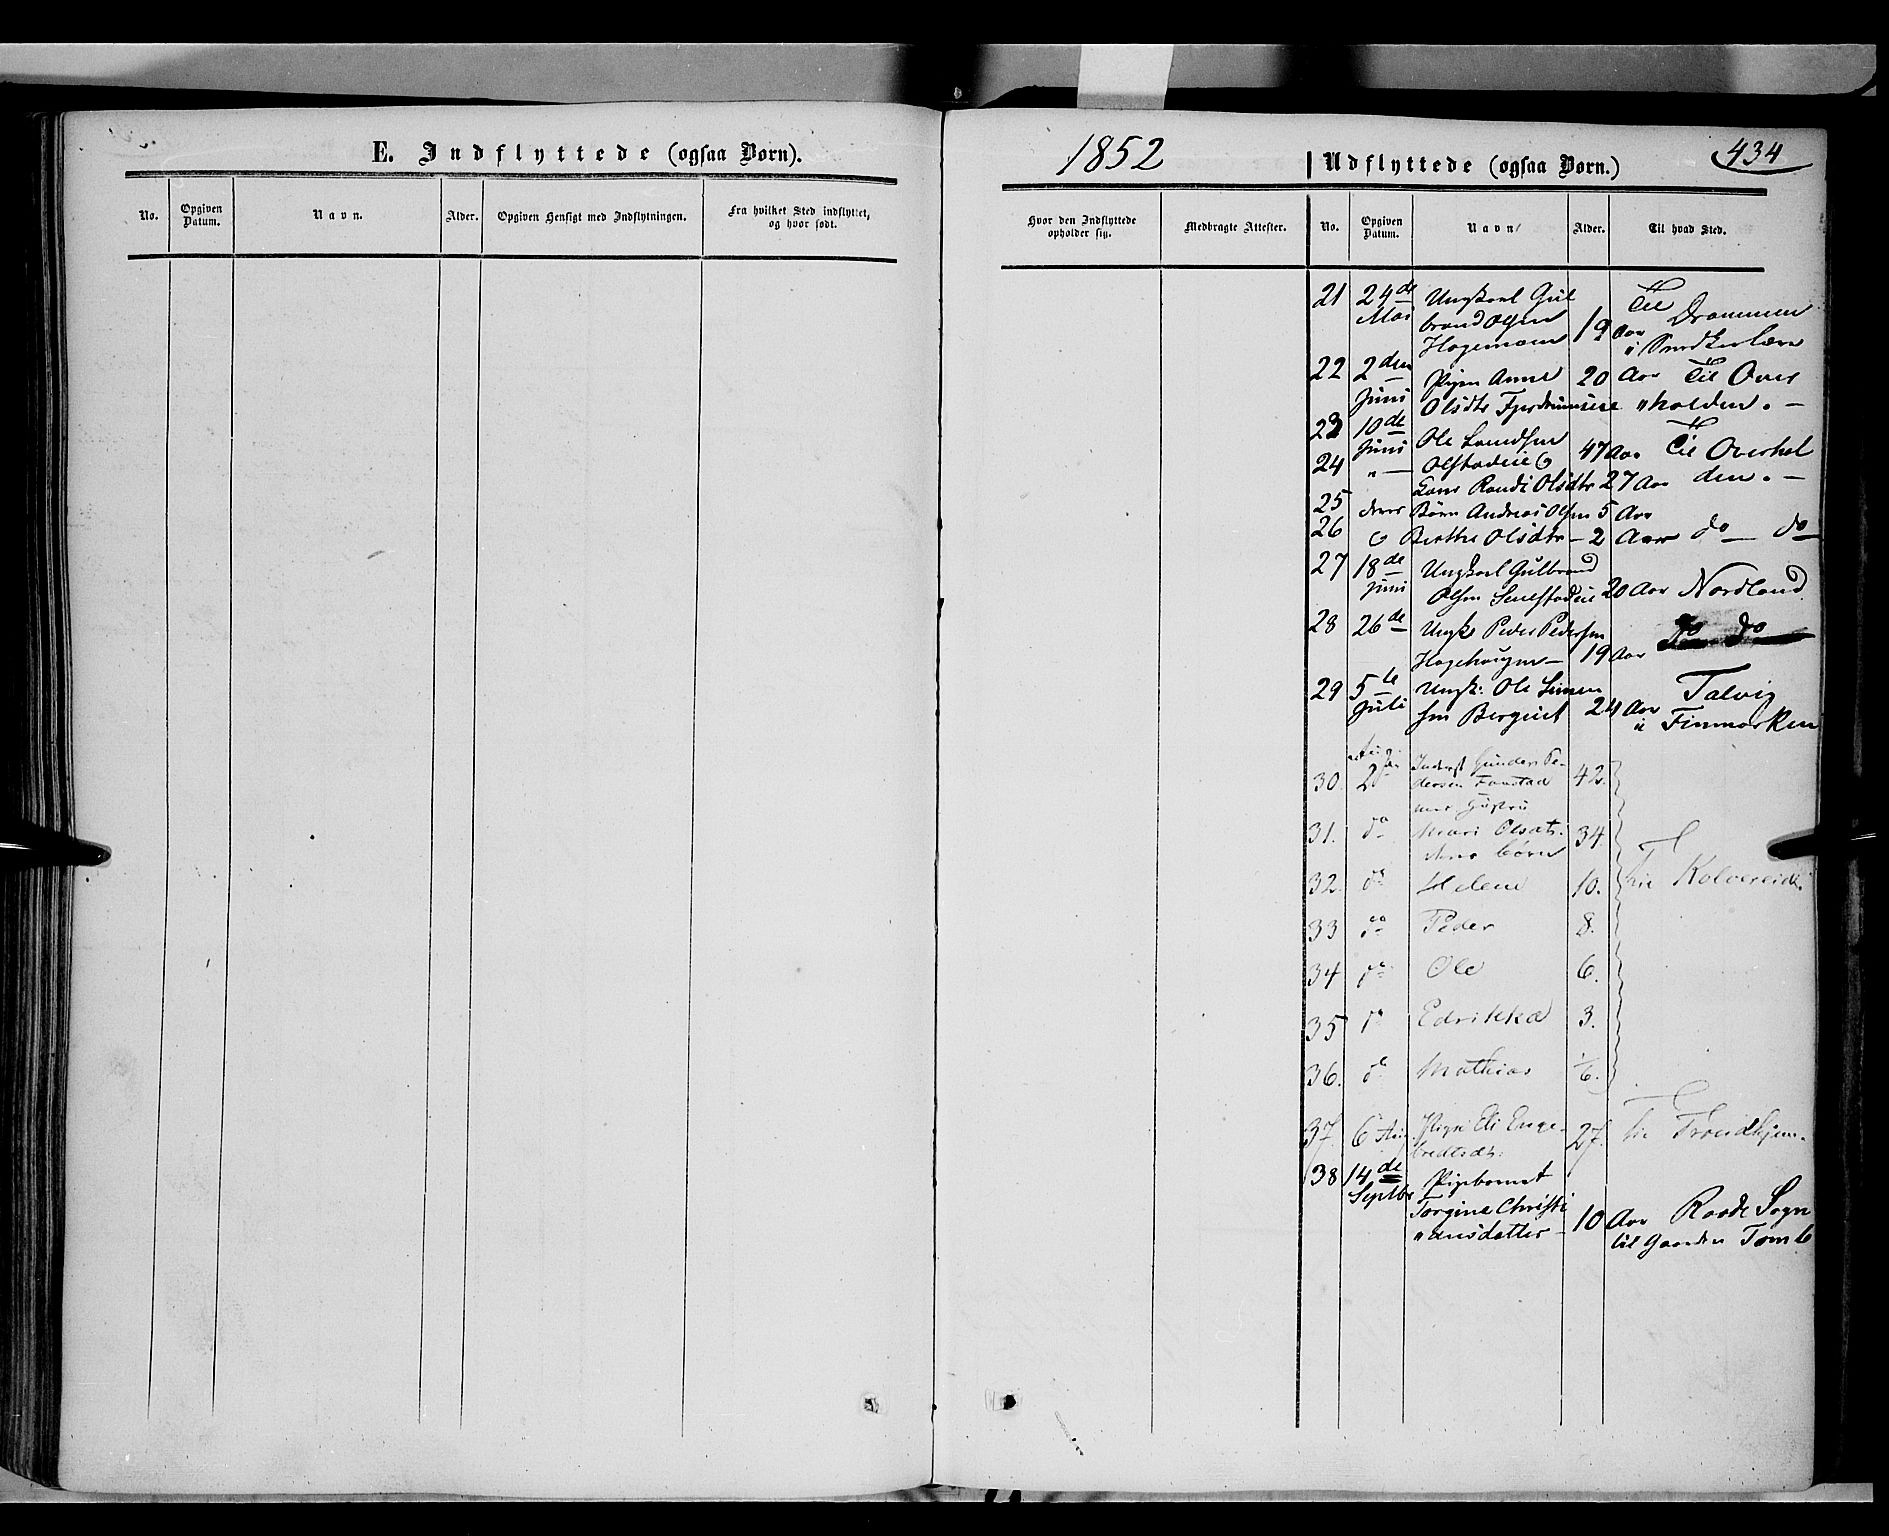 E. Indflyttede (ogsaa Børn).
No.
Opgiven Datum.
Navn.
Alder.
Opgiven Hensigt med Indflytningen.
Fra hvilket Sted indflyttet, og hvor født.
1852
Udflyttede (ogsaa Børn.)
434
Hvor den Indflyttede opholder sig.
Medbragte Attester.
No.
Opgiven Datum.
Navn
Alder.
Til hvad Sted.
21 24de Ungkarl Gul Til
Mai brand Olsen 19 Aar Drammen
Hagemoen i Snedkerlære
22 2den Pigen Anne 20 Aar Til Over
Juni Olsdtr "halden. -
23 10de Ole 47 Aar Til Overhal
Juni
24 " Olstadeie &
Kone Randi Olsdtr 27 Aar den. -
25 deres Børn Andreas Olsen 5 Aar
26 & Berthe Olsdtr - 2 Aar do do
27 18de Ungkarl Gulbrand
Juni Olsen 20 Aar Nordland
28 26de Ungk Peder Pedersen do do
Hagehaugen - 19 Aar
29 5te Ungk: Ole Simen Talvig
Juli sen Bergeiet 24 Aar i Finmarken
Aug
30. 2den Inderst Gunder Pe- 42.
dersen Fonstad
med Hustru
31. do Mari Olsdtr. 34.
deres børn
32. do Helene 10. til Kolvereid.
33 do Peder 8.
34 do Ole 6.
35 do Edrikka 3.
36. do Mathias 1/6.
37 6 Aug Pige Eli Enge- 27. til Trondhjem.
bredtsdt:
38 14de Pigebarnet
Septbr Torgine Christi 10 Aar Raade Sogn
"ansdatter - til Gaarden Tomb